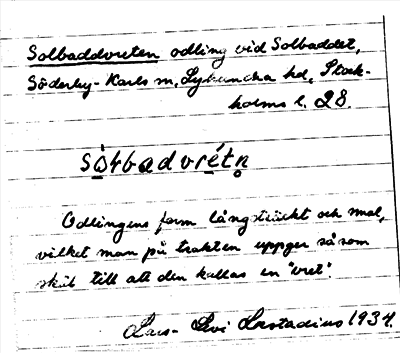 Solbaddvreten odling vid Solbadet,
Söderby-Karls sn, Lyhundra hd, Stock-
holms l. 28.
sò4badvrétn̥
Odlingens form långsträckt och smal,
vilket man på trakten uppger såsom
skäl till att den kallas en "vret".
Lars-Levi Læstadius 1934.